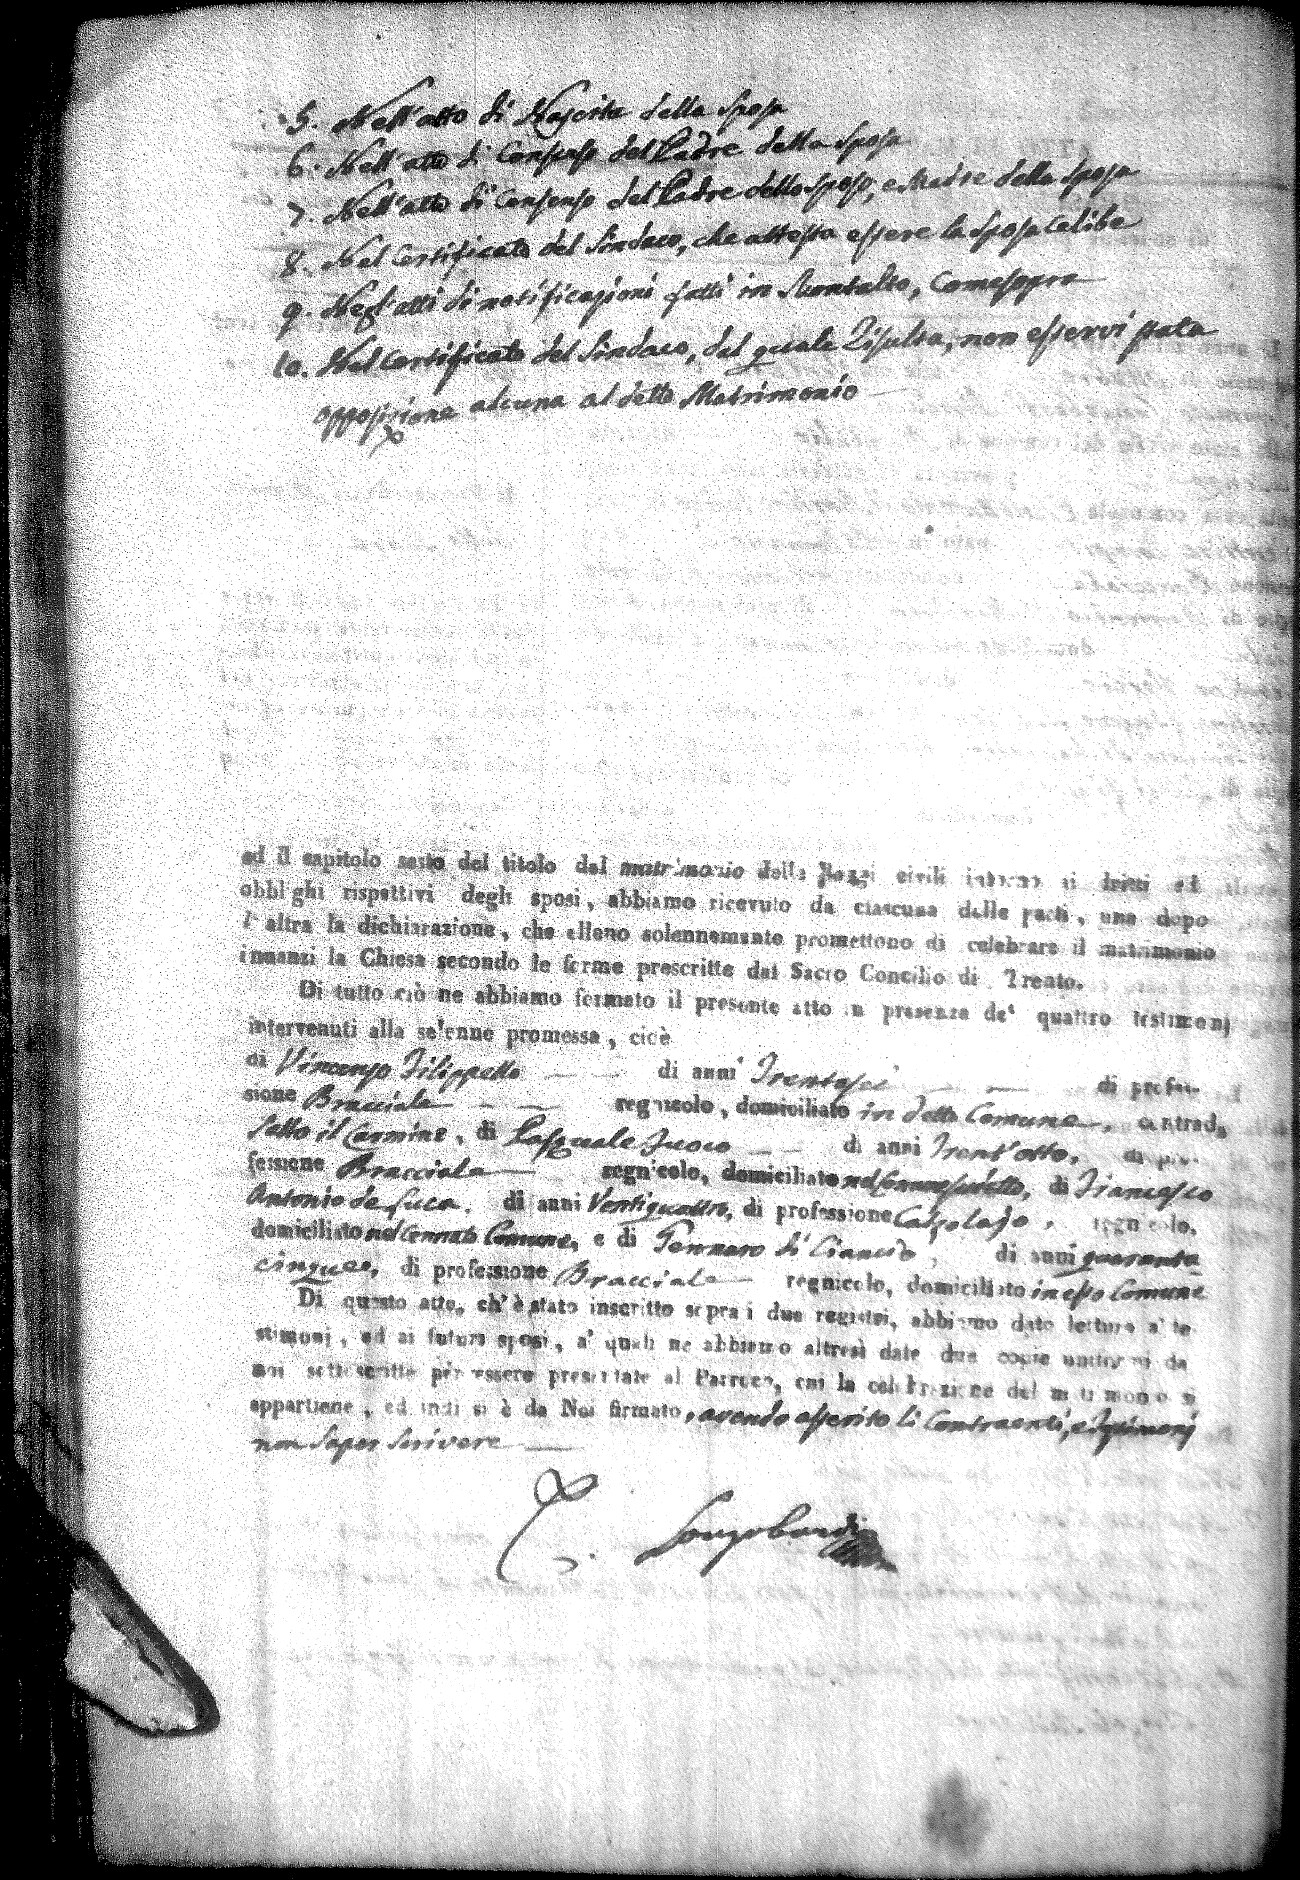 5. Nell'atto di Nascita della Sposa
6. Nell'atto di Consenso del Padre della Sposa
7. Nell'atto di Consenso del Padre dello Sposo, e Madre della Sposa
8. Nel Certificato del Sindaco, che attesta essere la Sposa Celibe
9. Negl'atti di notificazioni fatti in Montalto, Comesopra
10. Nel Certificato del Sindaco, dal quale Risulta, non esservi stata
opposizione alcuna al detto Matrimonio
ed il capitolo sesto del titolo del matrimonio delle Leggi civili intorno ai dritti ed
obblighi rispettivi degli sposi, abbiamo ricevuto da ciascuna delle parti, una dopo
l'altra la dichiarazione, che elleno solennemente promettono di celebrare il matrimonio
innanzi la Chiesa secondo le forme prescritte dal Sacro Concilio di Trento.
Di tutto ciò ne abbiamo formato il presente atto in presenza de' quattro testimonj
intervenuti alla solenne promessa, cioè
di Vincenzo Filippello di anni Trentasei di profes-
sione Bracciale regnicolo, domiciliato in detto Comune, contrada
Sotto il Carmine, di Pasquale Fuoco di anni Trent'otto, di pro-
fessione Bracciale regnicolo, domiciliato nel Comune sudetto, di Francesco
Antonio de Luca, di anni Ventiquattro, di professione Calzolajo, regnicolo,
domiciliato nel cennato Comune, e di Gennaro di Ciancio, di anni quaranta
cinque, di professione Bracciale regnicolo, domiciliato in esso Comune
Di questo atto, ch'è stato inscritto sopra i due registri, abbiamo dato lettura a' te-
stimonj, ed ai futuri sposi, a' quali ne abbiamo altresì date due copie uniformi da
noi sottoscritte per essere presentate al Parroco, cui la celebrazione del matrimonio si
appartiene, ed indi si è da Noi firmato, avendo asserito li Contraenti, e Testimonj
non Saper Scrivere
Longobardi